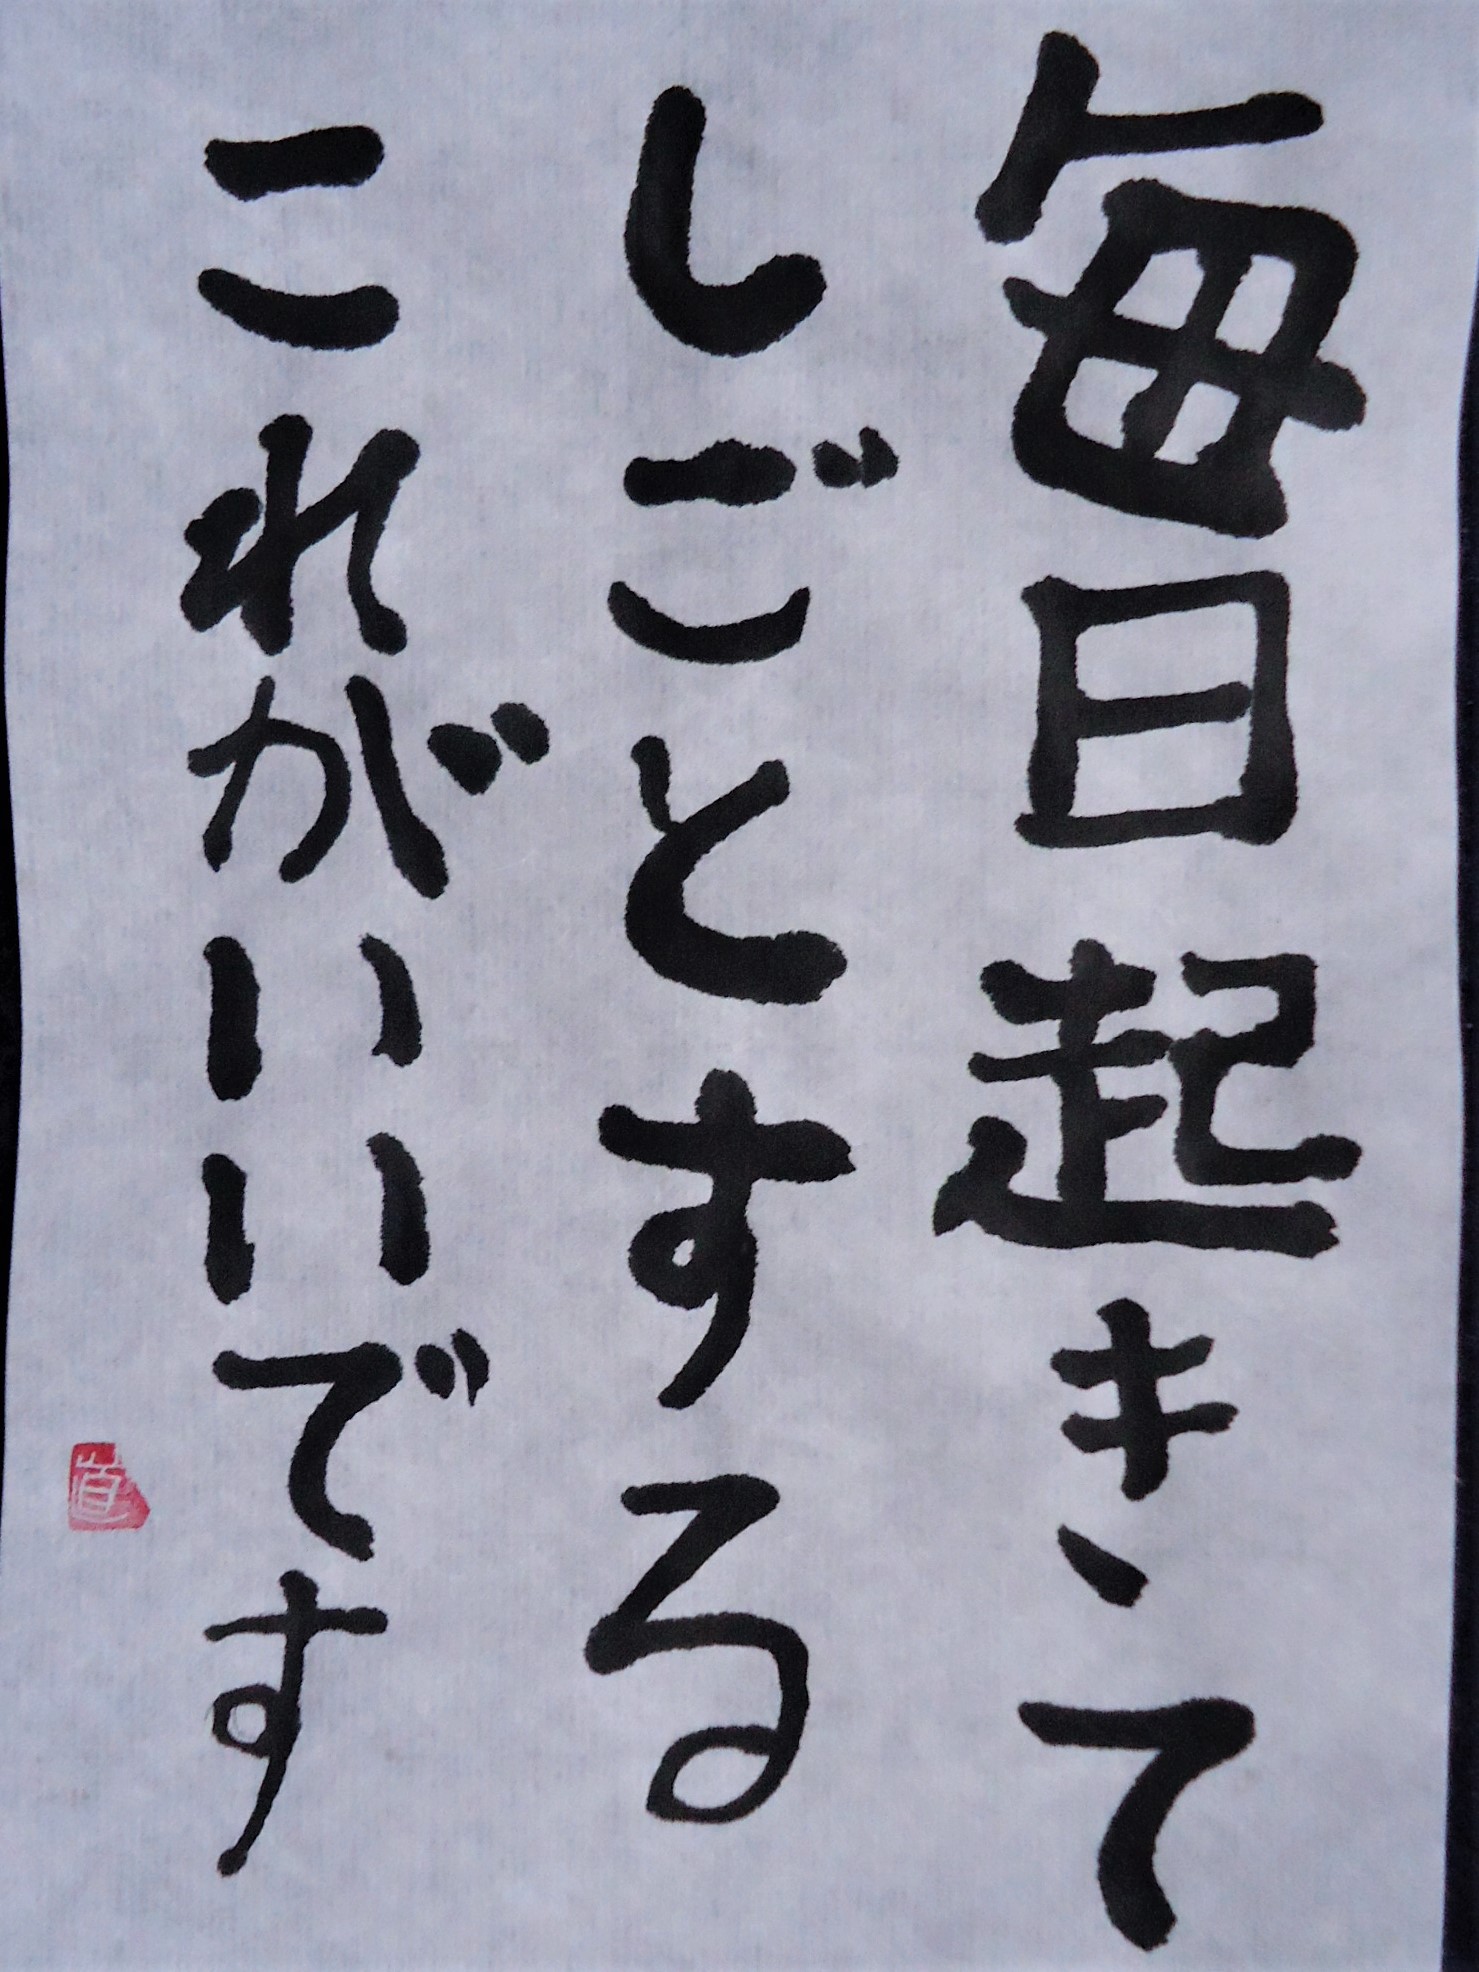 毎日起きて
しごとする
これがいいです
道